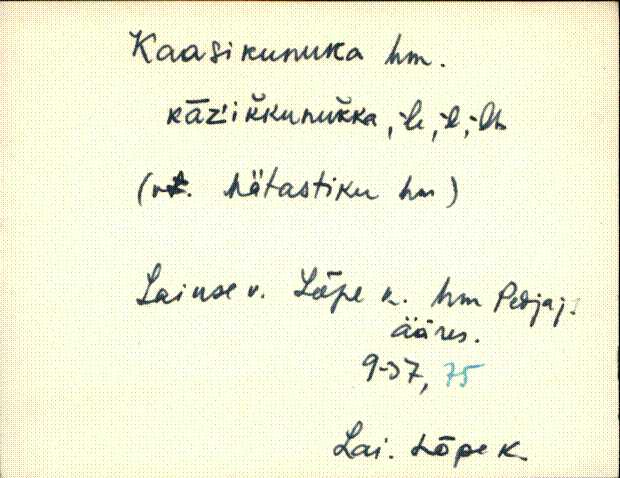 Kaasikunuka hm.
kāzʹik̆kunuk̆ka, -le, -l, -lt
(vt. Mätastiku hm)
Laiuse v. Lõpe k. hm Pedjaj.
ääres.
9-37, 75
Lai. Lõpe k